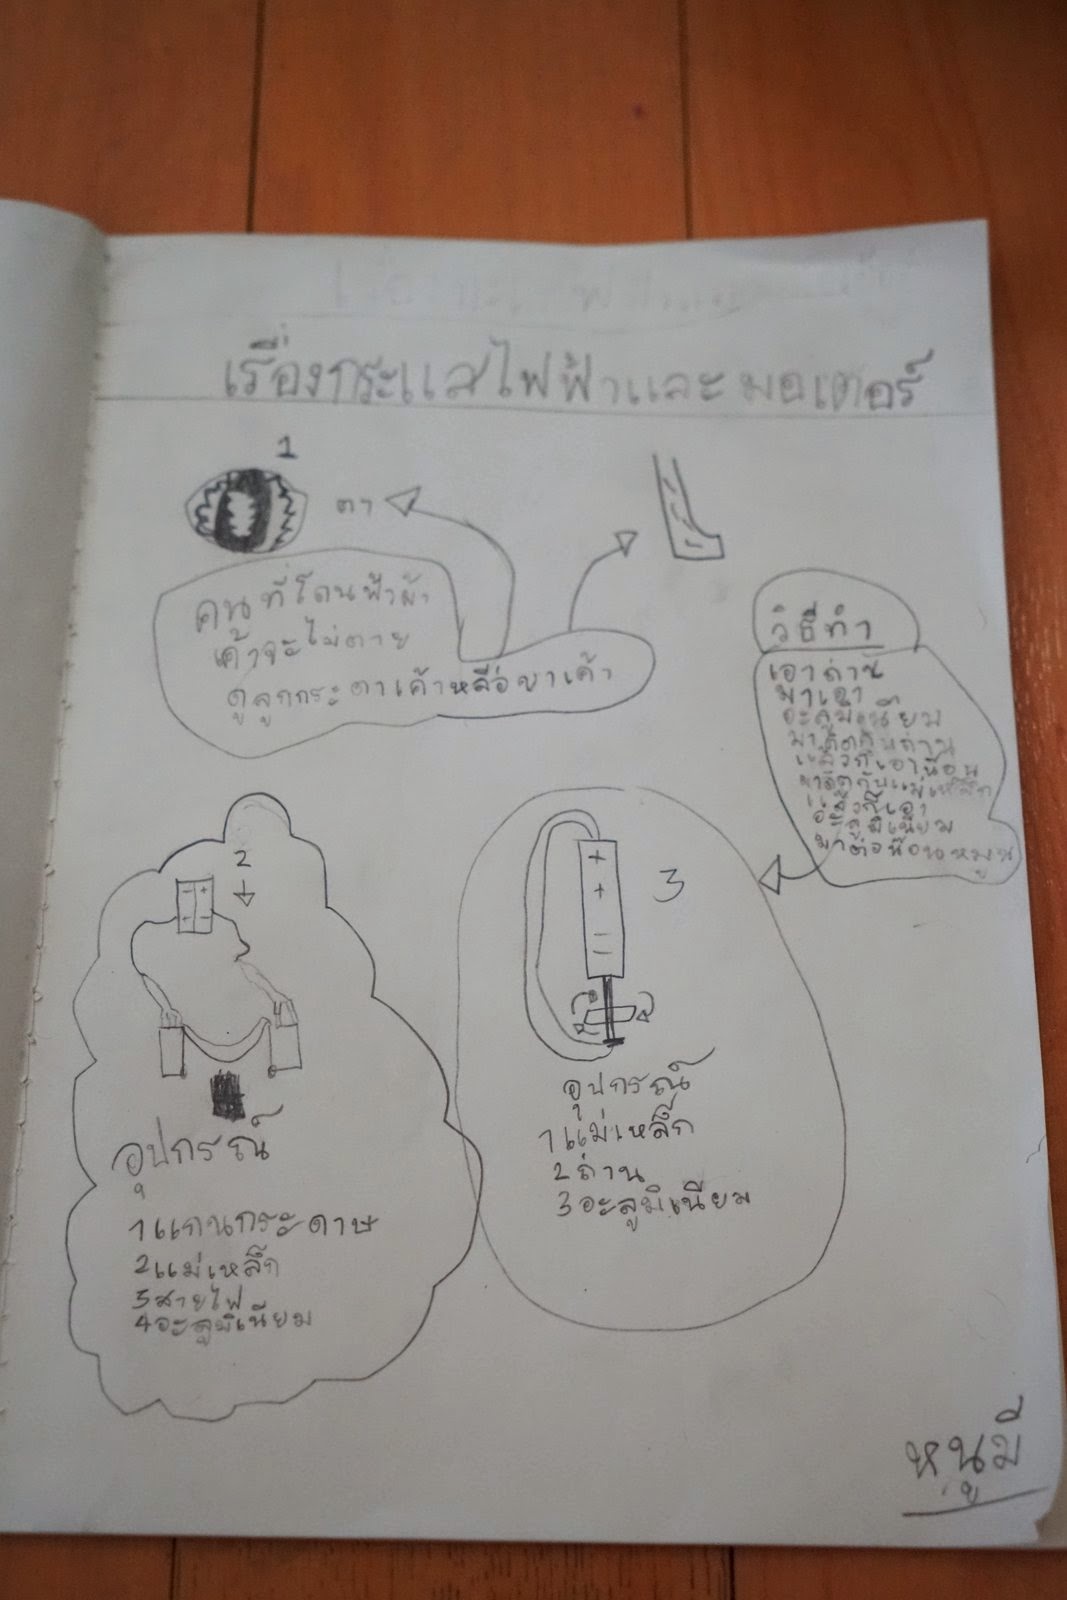 เรื่องกระแสไฟฟ้าและมอเตอร์
1
ตา
คนที่โดนฟ้าผ่า
เค้าจะไม่ตาย
ดูลูกกระตาเค้าหลือขาเค้า
วิธีทำ
เอาถ่าน
มาเอา
อะลูมิเนียม
มาติดกับถ่าน
แล้วก็เอาน๊อน
มาติดกับแม่เหล็ก
แล้วก็เอา
อะลูมิเนียม
มาต่อน๊อนหมุน
2
- +
+ -
อุปกรณ์
1 แกนกระดาษ
2 แม่เหล็ก
3 สายไฟ
4 อะลูมิเนียม
3
+
+
-
-
อุปกรณ์
1 แม่เหล็ก
2 ถ่าน
3 อะลูมิเนียม
หนูมี